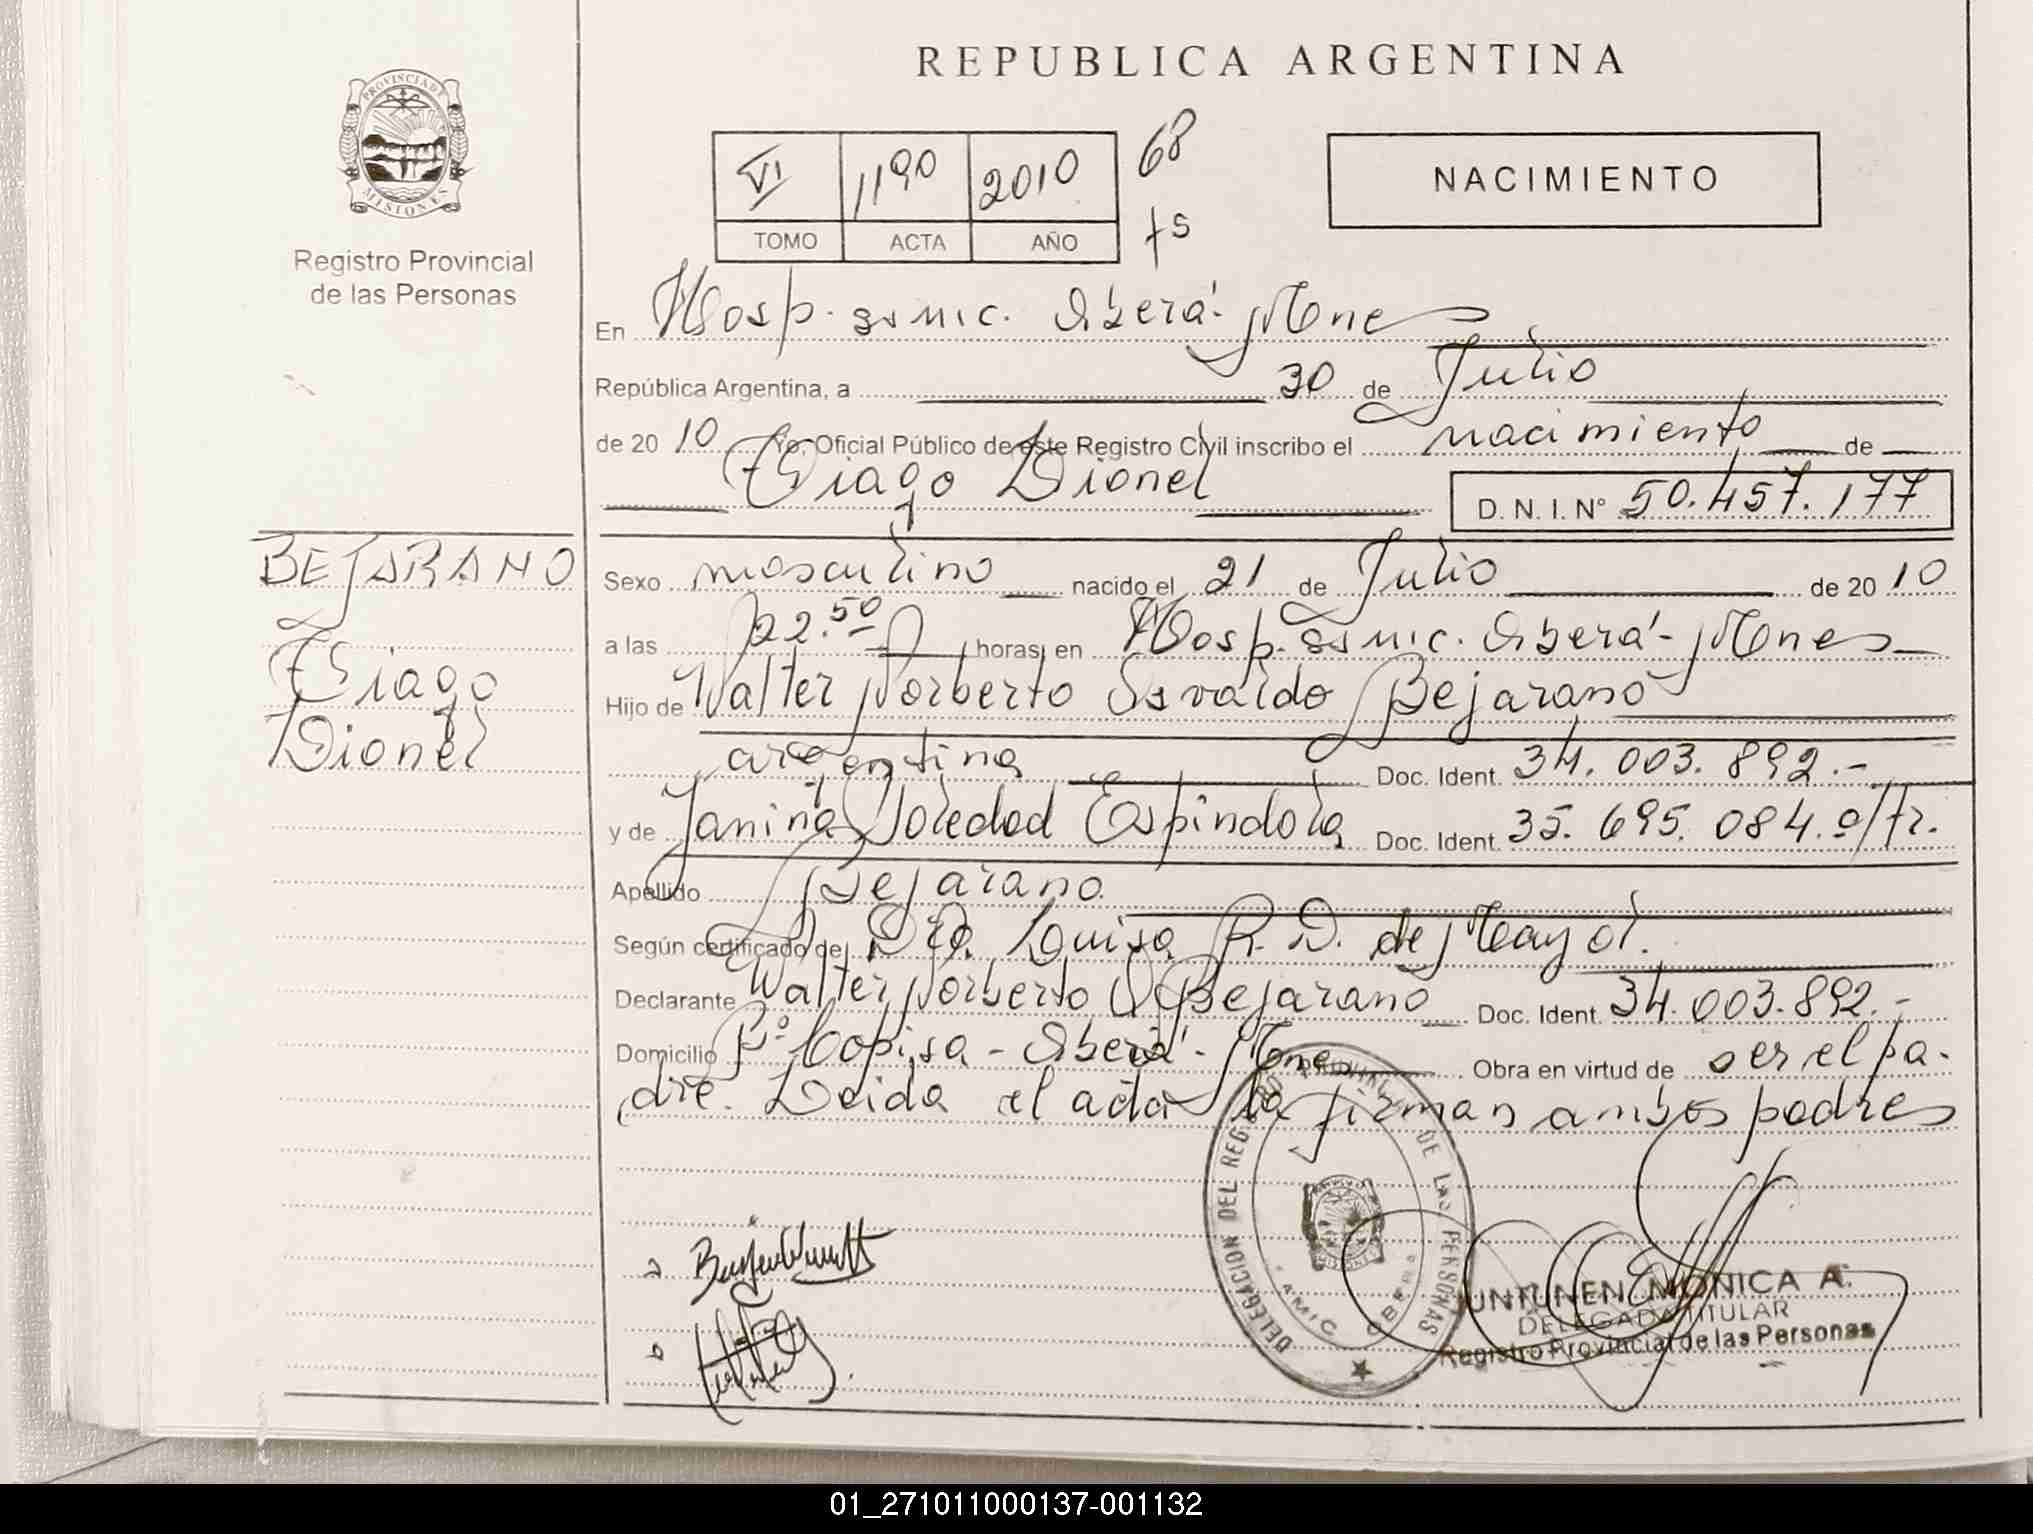 REPUBLICA ARGENTINA
PROVINCIA DE
MISIONES
Registro Provincial
de las Personas
VI 1190 2010 68
TOMO ACTA AÑO fs
NACIMIENTO
En Hosp. Oberá. Mnes
República Argentina, a 30 de Julio
de 20 10 Yo, Oficial Público de este Registro Civil inscribo el nacimiento de
Thiago Dionel D. N. I. Nº 50.457.177
BEJARANO
Thiago
Dionel
Sexo masculino nacido el 21 de Julio de 20 10
a las 22.50 horas, en Hosp. Oberá - Mnes
Hijo de Walter Norberto Osvaldo Bejarano
argentina Doc. Ident. 34.003.892.-
y de Janina Soledad Espindola Doc. Ident. 35.695.084.
Apellido Bejarano
Según certificado de Dra. Luisa R. D. de Mayol.
Declarante Walter Norberto O Bejarano Doc. Ident. 34.003.892.-
Domicilio Bº Copisa - Oberá - Mnes Obra en virtud de ser el pa-
dre. Leida el acta la firman ambos padres
DELEGACION DEL REGISTRO PROVINCIAL DE LAS PERSONAS
OBERA
JUNTUNEN MONICA A.
DELEGADA TITULAR
Registro Provincial de las Personas
01_271011000137-001132